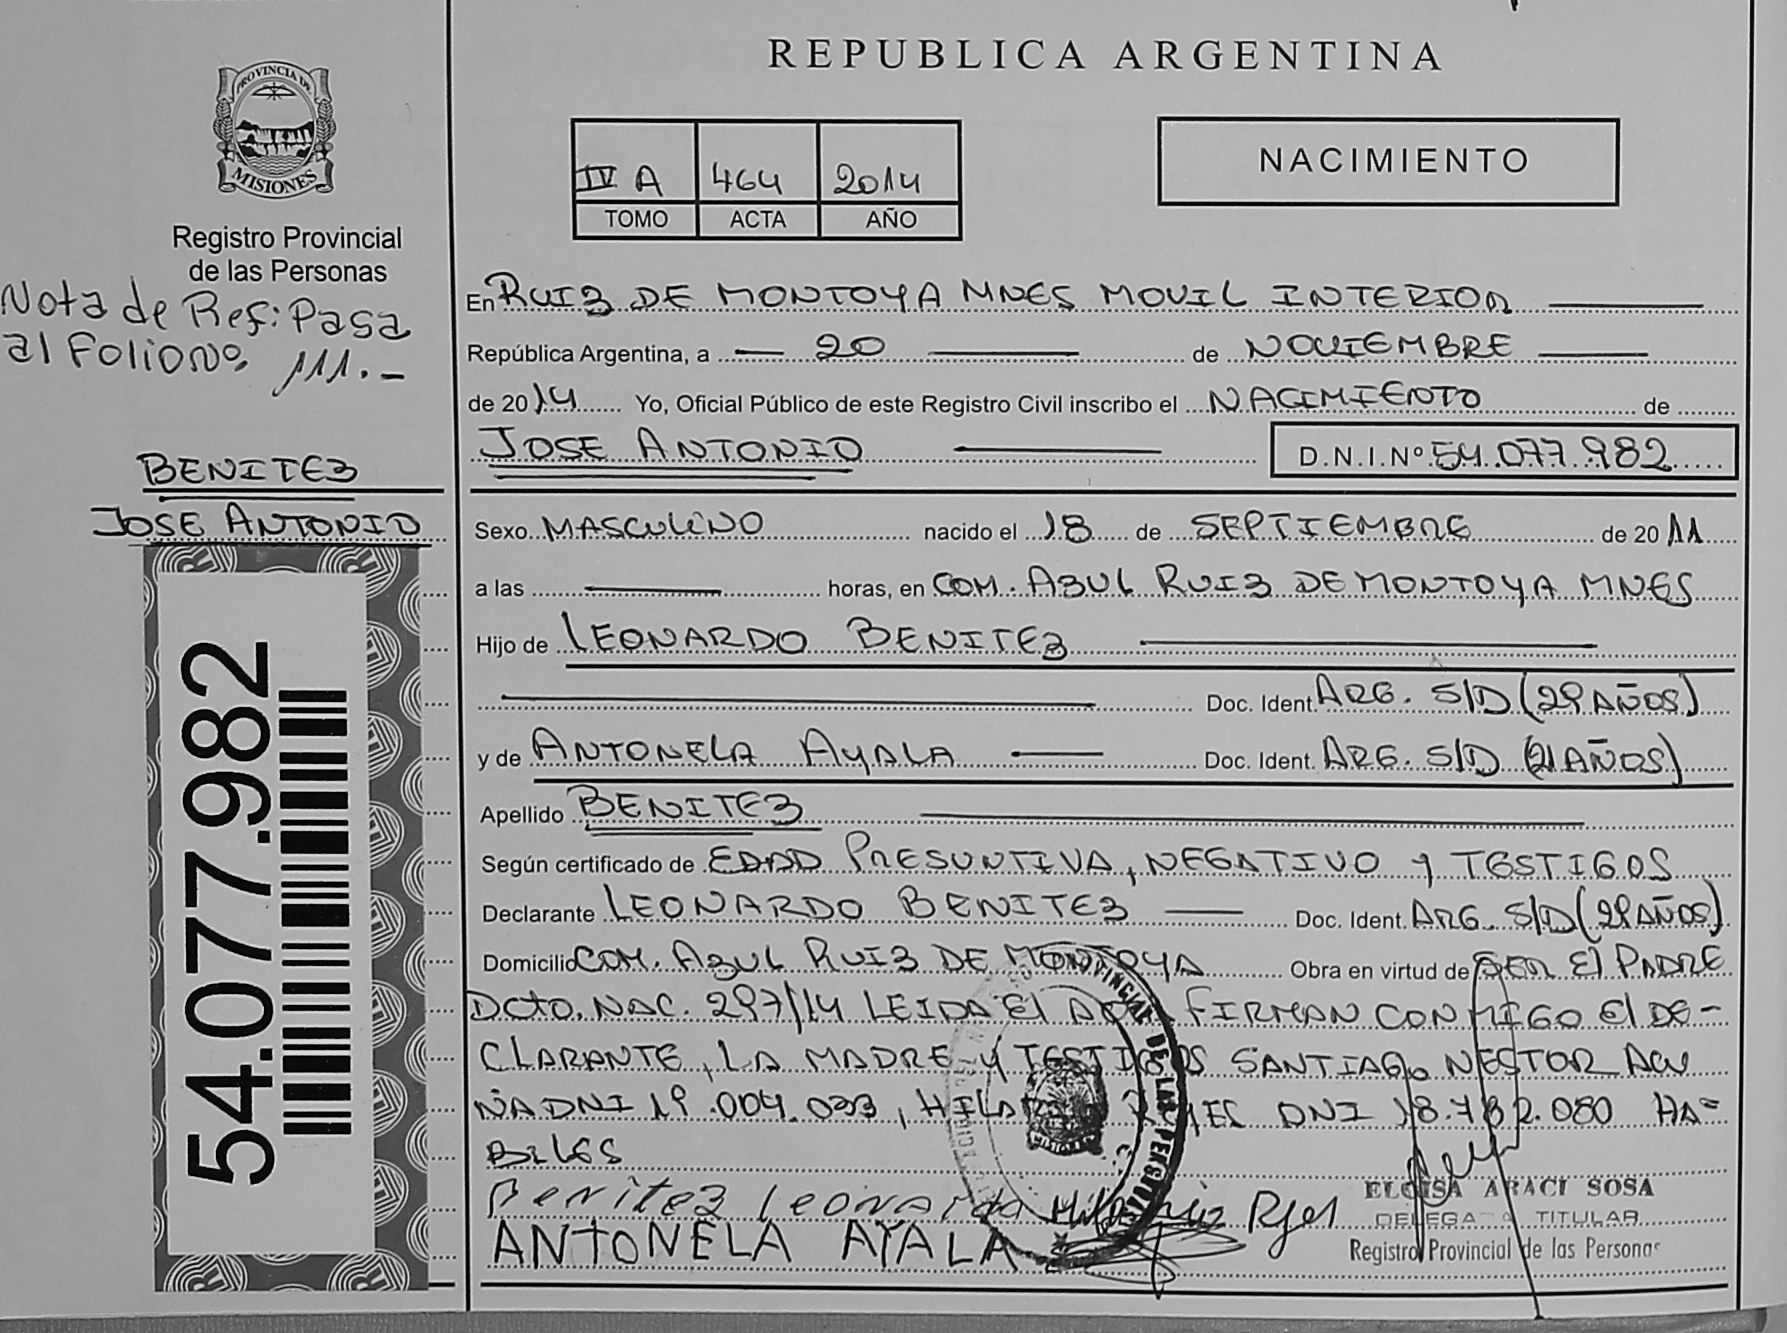 PROVINCIA DE
MISIONES
Registro Provincial
de las Personas
Nota de Ref: Pasa
al Folio Nº 111.-
BENITEZ
JOSE ANTONIO
54.077.982
REPUBLICA ARGENTINA
IV A 464 2014
TOMO ACTA AÑO
NACIMIENTO
En RUIZ DE MONTOYA MNES MOVIL INTERIOR
República Argentina, a 20 de NOVIEMBRE
de 2014 Yo, Oficial Público de este Registro Civil inscribo el NACIMIENTO de
JOSE ANTONIO D.N.I.Nº 54.077.982
Sexo MASCULINO nacido el 18 de SEPTIEMBRE de 2011
a las horas, en COM. AZUL RUIZ DE MONTOYA MNES
Hijo de LEONARDO BENITEZ
Doc. Ident. ARG. S/D (29 AÑOS)
y de ANTONELA AYALA Doc. Ident. ARG. S/D (21 AÑOS)
Apellido BENITEZ
Según certificado de EDAD PRESUNTIVA, NEGATIVO y TESTIGOS
Declarante LEONARDO BENITEZ Doc. Ident. ARG. S/D (29 AÑOS)
Domicilio COM. AZUL RUIZ DE MONTOYA Obra en virtud de SER El PADRE
DCto. NAC. 297/14 LEIDA El FIRMAN CONMIGO El DE-
CLARANTE, LA MADRE y TESTIGOS SANTIAGO NESTOR ACU
ÑA DNI 19.004.033, DNI 18.782.080 HA=
BILES
Benitez Leonardo
ANTONELA AYALA
ELOISA ARACI SOSA
DELEGADA TITULAR
Registro Provincial de las Personas